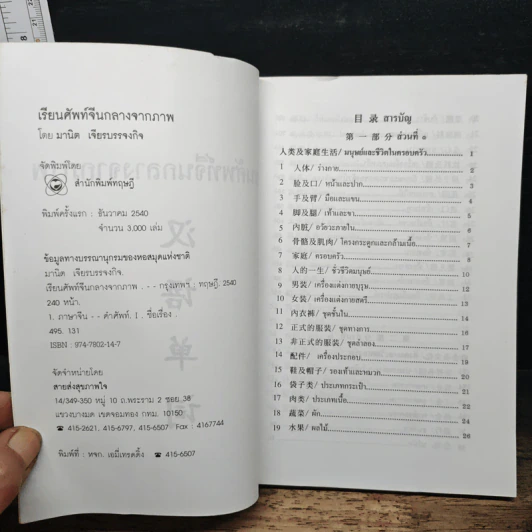 เรียนศัพท์จีนกลางจากภาพ
โดย มานิต เจียรบรรจงกิจ
จัดพิมพ์โดย
สำนักพิมพ์ทฤษฎี
พิมพ์ครั้งแรก : ธันวาคม 2540
จำนวน 3,000 เล่ม
ข้อมูลทางบรรณานุกรมของหอสมุดแห่งชาติ
มานิต เจียรบรรจงกิจ.
เรียนศัพท์จีนกลางจากภาพ . -- กรุงเทพฯ : ทฤษฎี, 2540
240 หน้า.
1. ภาษาจีน -- คำศัพท์. I. ชื่อเรื่อง.
495. 131
ISBN : 974-7802-14-7
จัดจำหน่ายโดย
สายส่งสุขภาพใจ
14/349-350 หมู่ 10 ถ.พระราม 2 ซอย 38
แขวงบางมด เขตจอมทอง กทม. 10150
☎ 415-2621, 415-6797, 415-6507 Fax : 4167744
พิมพ์ที่ : หจก. เอมี่เทรดดิ้ง ☎ 415-6507
汉
语
单
目 录 สารบัญ
第 一 部 分 ส่วนที่ ๑
人类及家庭生活/ มนุษย์และชีวิตในครอบครัว 1
1 人体/ ร่างกาย
2 脸及口/ หน้าและปาก
3 手及臂/ มือและแขน
4 脚及腿/ เท้าและขา
5 内脏/ อวัยวะภายใน
6 骨骼及肌肉/ โครงกระดูกและกล้ามเนื้อ
7 家庭/ ครอบครัว
8 人的一生/ ชั่วชีวิตมนุษย์
9 男装/ เครื่องแต่งกายบุรุษ
10 女装/ เครื่องแต่งกายสตรี
11 内衣裤/ ชุดชั้นใน
12 正式的服装/ ชุดทางการ
13 非正式的服装/ ชุดลำลอง
14 配件/ เครื่องประกอบ
15 鞋及帽子/ รองเท้าและหมวก
16 袋子类/ ประเภทกระเป๋า
17 肉类/ ประเภทเนื้อ
18 蔬菜/ ผัก 24
19 水果/ ผลไม้ 26